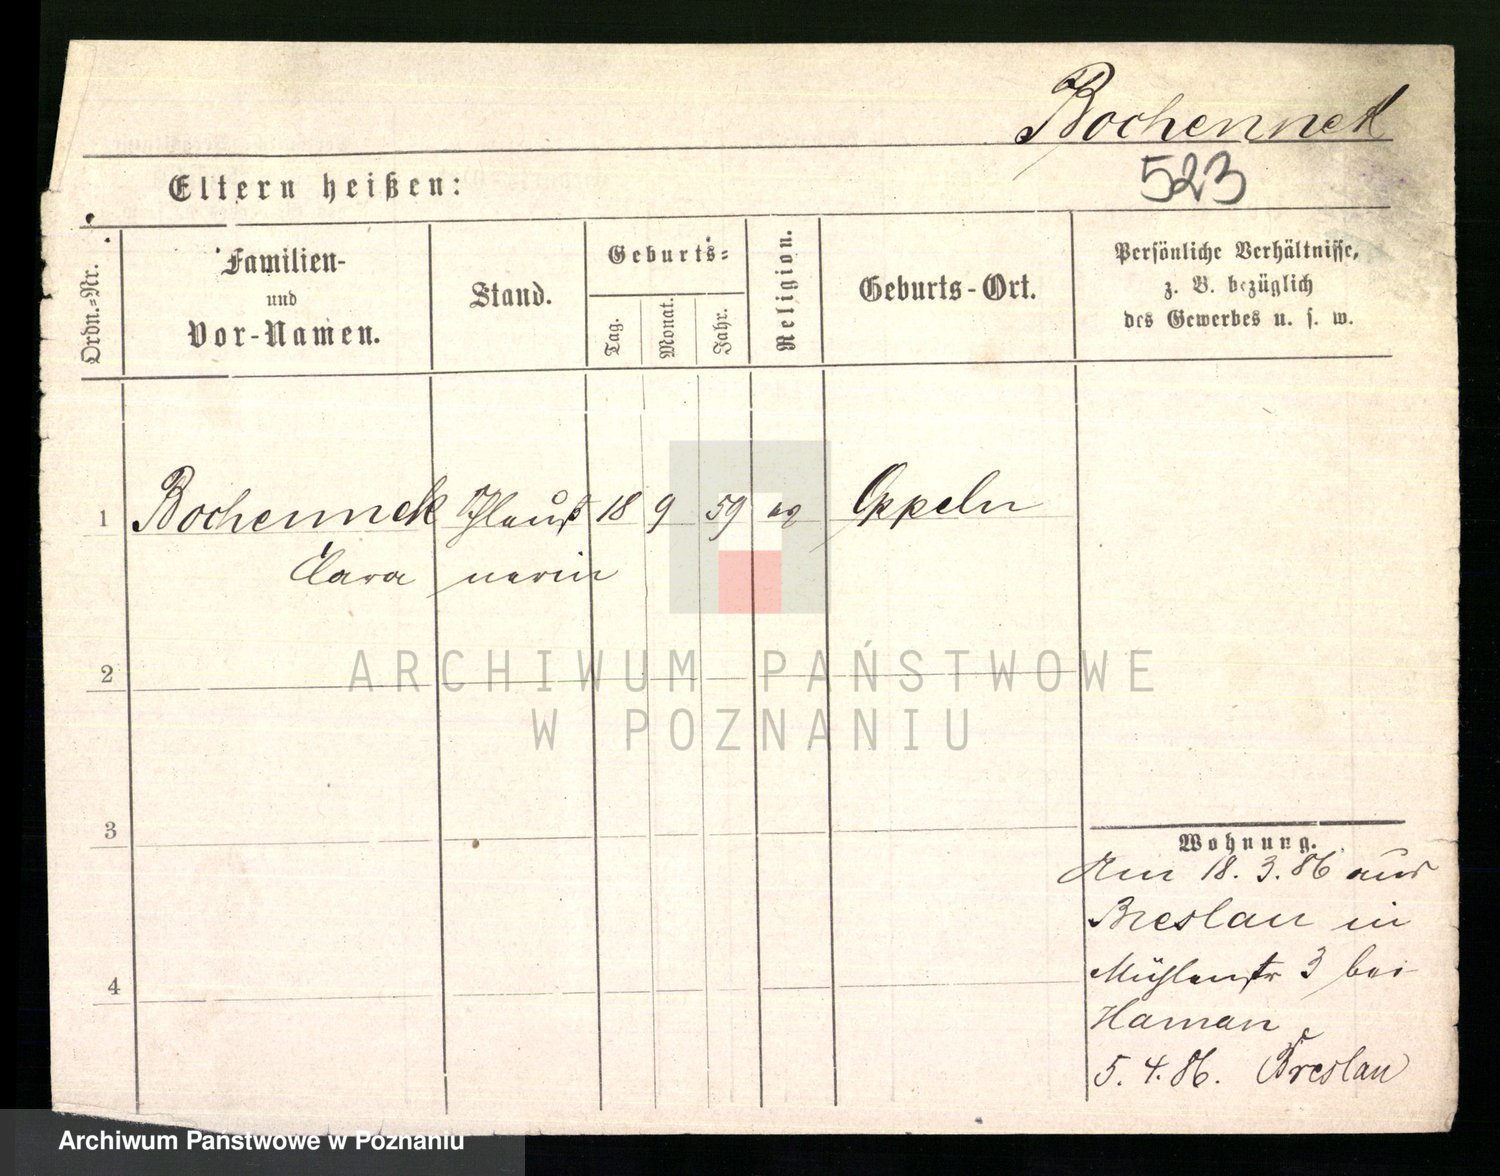 Bochennek
523
Eltern heißen:
Ordn.=Nr.
Familien-
und
Vor-Namen.
Stand.
Geburts=
Tag.
Monat.
Jahr.
Religion.
Geburts-Ort.
Persönliche Verhältnisse,
z. B. bezüglich
des Gewerbes u. s. w.
1 Bochennek 18 9 59 Oppeln
Clara nerin
2
3
4
Wohnung.
Am 18. 3. 86 aus
Breslau in
Mühlenstr 3 bei
Haman
5. 4. 86. Breslau
ARCHIWUM PAŃSTWOWE
W POZNANIU
Archiwum Państwowe w Poznaniu